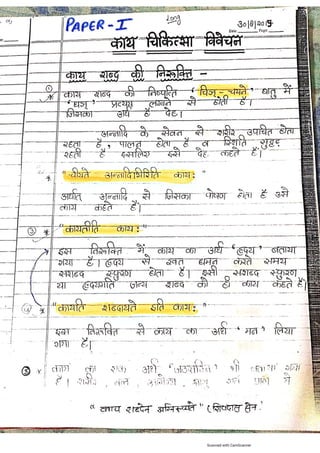 PAPER-I
30/8/2015
Date Page
काय चिकित्सा विवेचन
काय शब्द की निरूक्ति -
① काय शब्द की निष्पत्ति 'चिञ्-चयने' धातु में
'घञ्' प्रत्यय लगाने से होती है।
जिसका अर्थ है देह।
अन्नादि के सेवन से शरीर उपचित होता
रहता है, पालन होता है व स्थिति सुदृढ़
रहती है इसलिए इसे देह कहते हैं।
"चीयते अन्नादिभिरिति कायः"
अर्थात् अन्नादि से जिसका पोषण होता है उसे
काय कहते हैं।
③ "कायतीति कायः"
इस निरूक्ति में काय का अर्थ 'हृदय' बताया
गया है। हृदय से रक्त धमन करते समय
सशब्द स्फुरण होता है। इसी सशब्द स्फुरण
या हृदयगति जन्य शब्द को ही काय कहते हैं।
"कायति शब्दायते इति कायः"
इस निरूक्ति से काय का अर्थ 'मन' लिया
गया है।
काय का एक अर्थ 'जठराग्नि' भी
है। शरीर, बल, आरोग्य, आयु
Scanned with CamScanner